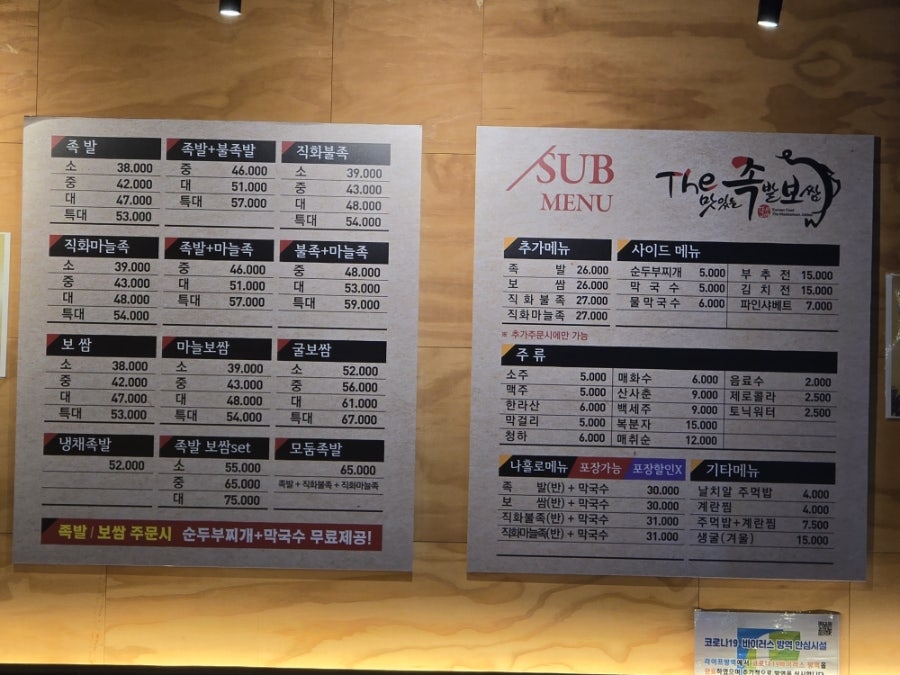 족 발
소 38.000
중 42.000
대 47.000
특대 53.000
족발+불족발
중 46.000
대 51.000
특대 57.000
직화불족
소 39.000
중 43.000
대 48.000
특대 54.000
직화마늘족
소 39.000
중 43.000
대 48.000
특대 54.000
족발+마늘족
중 46.000
대 51.000
특대 57.000
불족+마늘족
중 48.000
대 53.000
특대 59.000
보 쌈
소 38.000
중 42.000
대 47.000
특대 53.000
마늘보쌈
소 39.000
중 43.000
대 48.000
특대 54.000
굴보쌈
소 52.000
중 56.000
대 61.000
특대 67.000
냉채족발
52.000
족발 보쌈set
소 55.000
중 65.000
대 75.000
모둠족발
65.000
족발 + 직화불족 + 직화마늘족
족발 / 보쌈 주문시 순두부찌개+막국수 무료제공!
SUB
MENU
The 맛있는 족발보쌈
추가메뉴
족 발 26.000
보 쌈 26.000
직 화 불 족 27.000
직화마늘족 27.000
※ 추가주문시에만 가능
사이드 메뉴
순두부찌개 5.000
막 국 수 5.000
물막국수 6.000
부 추 전 15.000
김 치 전 15.000
파인샤베트 7.000
주 류
소주 5.000
맥주 5.000
한라산 6.000
막걸리 5.000
청하 6.000
매화수 6.000
산사춘 9.000
백세주 9.000
복분자 15.000
매취순 12.000
음료수 2.000
제로콜라 2.500
토닉워터 2.500
나홀로메뉴 포장가능 포장할인X
족 발(반) + 막국수 30.000
보 쌈(반) + 막국수 30.000
직화불족(반) + 막국수 31.000
직화마늘족(반) + 막국수 31.000
기타메뉴
날치알 주먹밥 4.000
계란찜 4.000
주먹밥+계란찜 7.500
생굴(겨울) 15.000
코로나19 바이러스 방역 안심시설